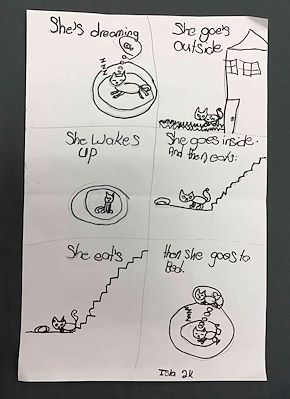 She's dreaming
zzz
She goe's
outside
She Wakes
up
She goes inside.
And then eats.
She eat's
then she goes to
Bed.
Isla 2K